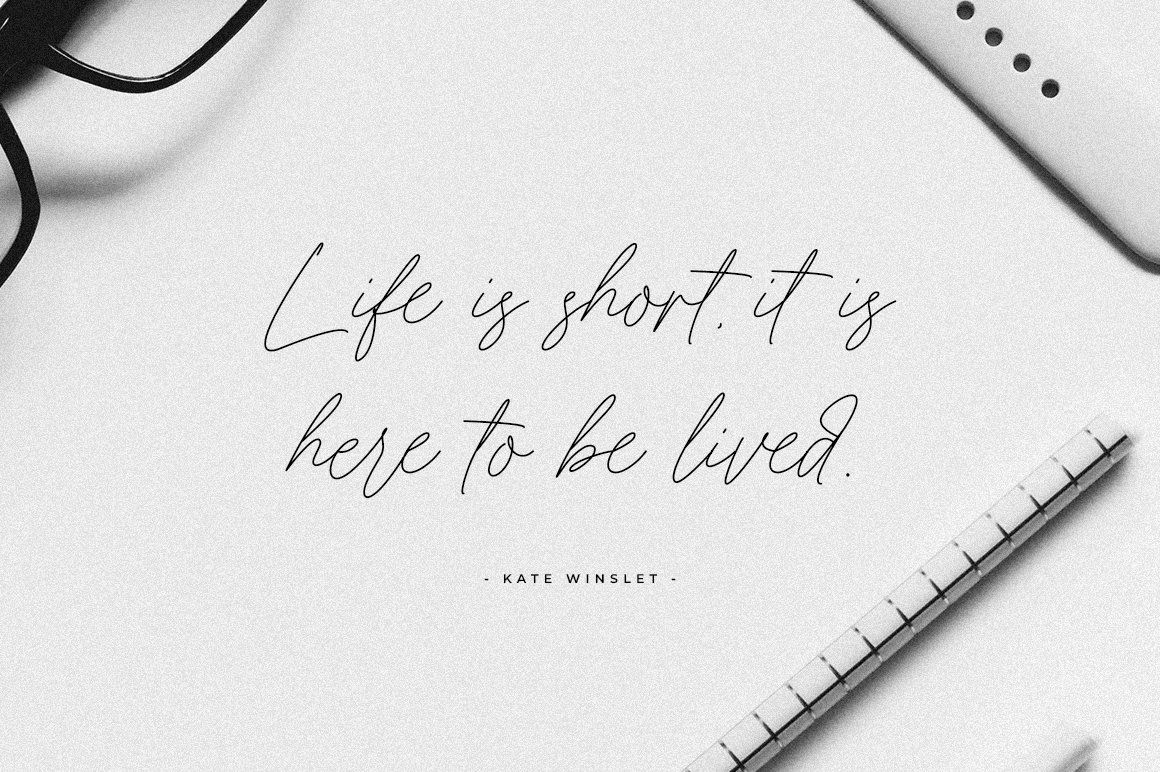 Life is short, it is
here to be lived.
- KATE WINSLET -